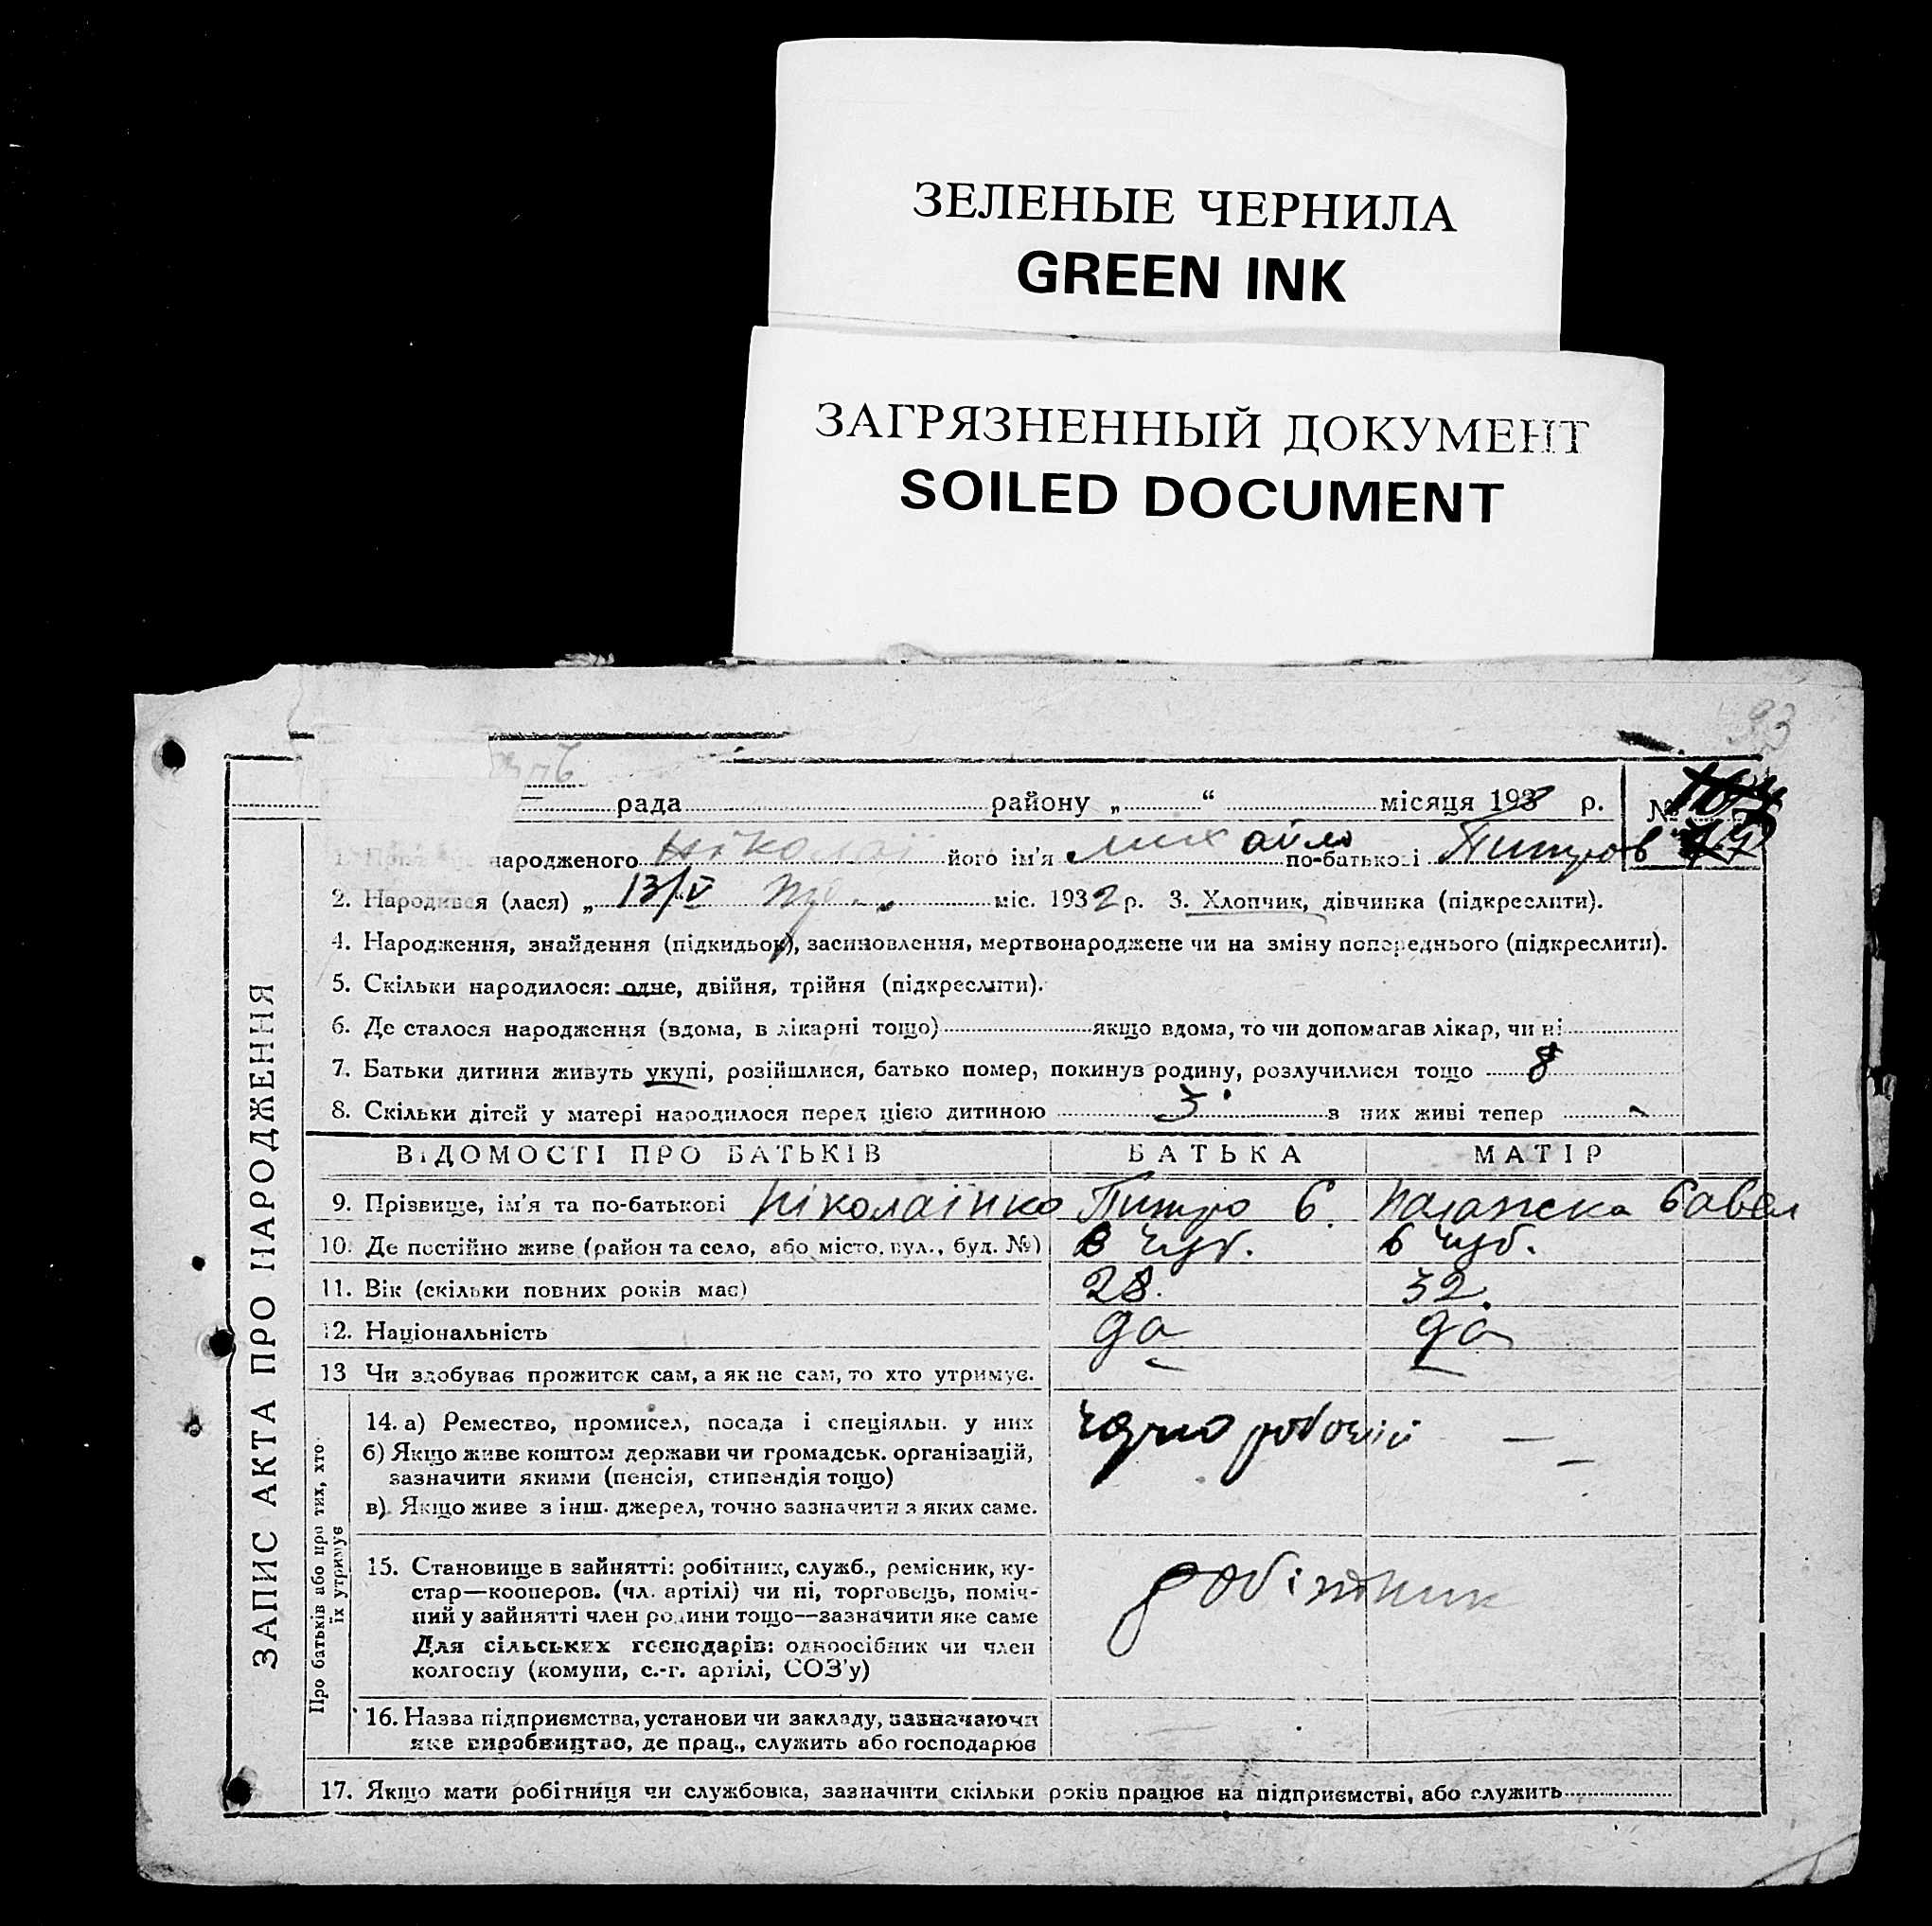 ЗЕЛЕНЫЕ ЧЕРНИЛА
GREEN INK
ЗАГРЯЗНЕННЫЙ ДОКУМЕНТ
SOILED DOCUMENT
93
рада районе „ “ місяця 193 р. №
народженого його ім'я михайло по-батькові Питров 17
2. Народився (лася) „ 13/V міс. 1932 р. 3. Хлопчик, дівчинка (підкреслити).
4. Народження, знайдення (підкидьок), засиновлення, мертвонароджене чи на зміну попереднього (підкреслити).
5. Скільки народилося: одне, двійня, трійня (підкреслити).
6. Де сталося народження (вдома, в лікарні тощо) якщо вдома, то чи допомагав лікар, чи ні
7. Батьки дитини живуть укупі, розійшлися, батько помер, покинув родину, розлучилися тощо 8
8. Скільки дітей у матері народилося перед цією дитиною 3 з них живі тепер
ЗАПИС АКТА ПРО НАРОДЖЕННЯ
ВІДОМОСТІ ПРО БАТЬКІВ БАТЬКА МАТІР
9. Прізвище, ім'я та по-батькові Ніколаїнко Питро Б. Палажска Бавел
10. Де постійно живе (район та село, або місто, вул., буд. №) в чуб. в чуб.
11. Вік (скільки повних років має) 28. 32.
12. Національність да да
13 Чи здобуває прожиток сам, а як не сам, то хто утримує.
Про батьків або про тих, хто їх утримує
14. а) Ремество, промисел, посада і спеціяльн. у них робочій — —
б) Якщо живе коштом держави чи громадськ. організацій,
зазначити якими (пенсія, стипендія тощо)
в) Якщо живе з інш. джерел, точно зазначити з яких саме.
15. Становище в зайнятті: робітник, служб., ремісник, ку-
стар—кооперов. (чл. артілі) чи ні, торговець, поміч-
ний у зайнятті член родини тощо—зазначити яке саме робітник
Для сільських господарів: одноосібник чи член
колгоспу (комуни, с.-г. артілі, СОЗ'у)
16. Назва підприємства, установи чи закладу, зазначаючи
яке виробництво, де прац., служить або господарює
17. Якщо мати робітниця чи службовка, зазначити скільки років працює на підприємстві, або служить